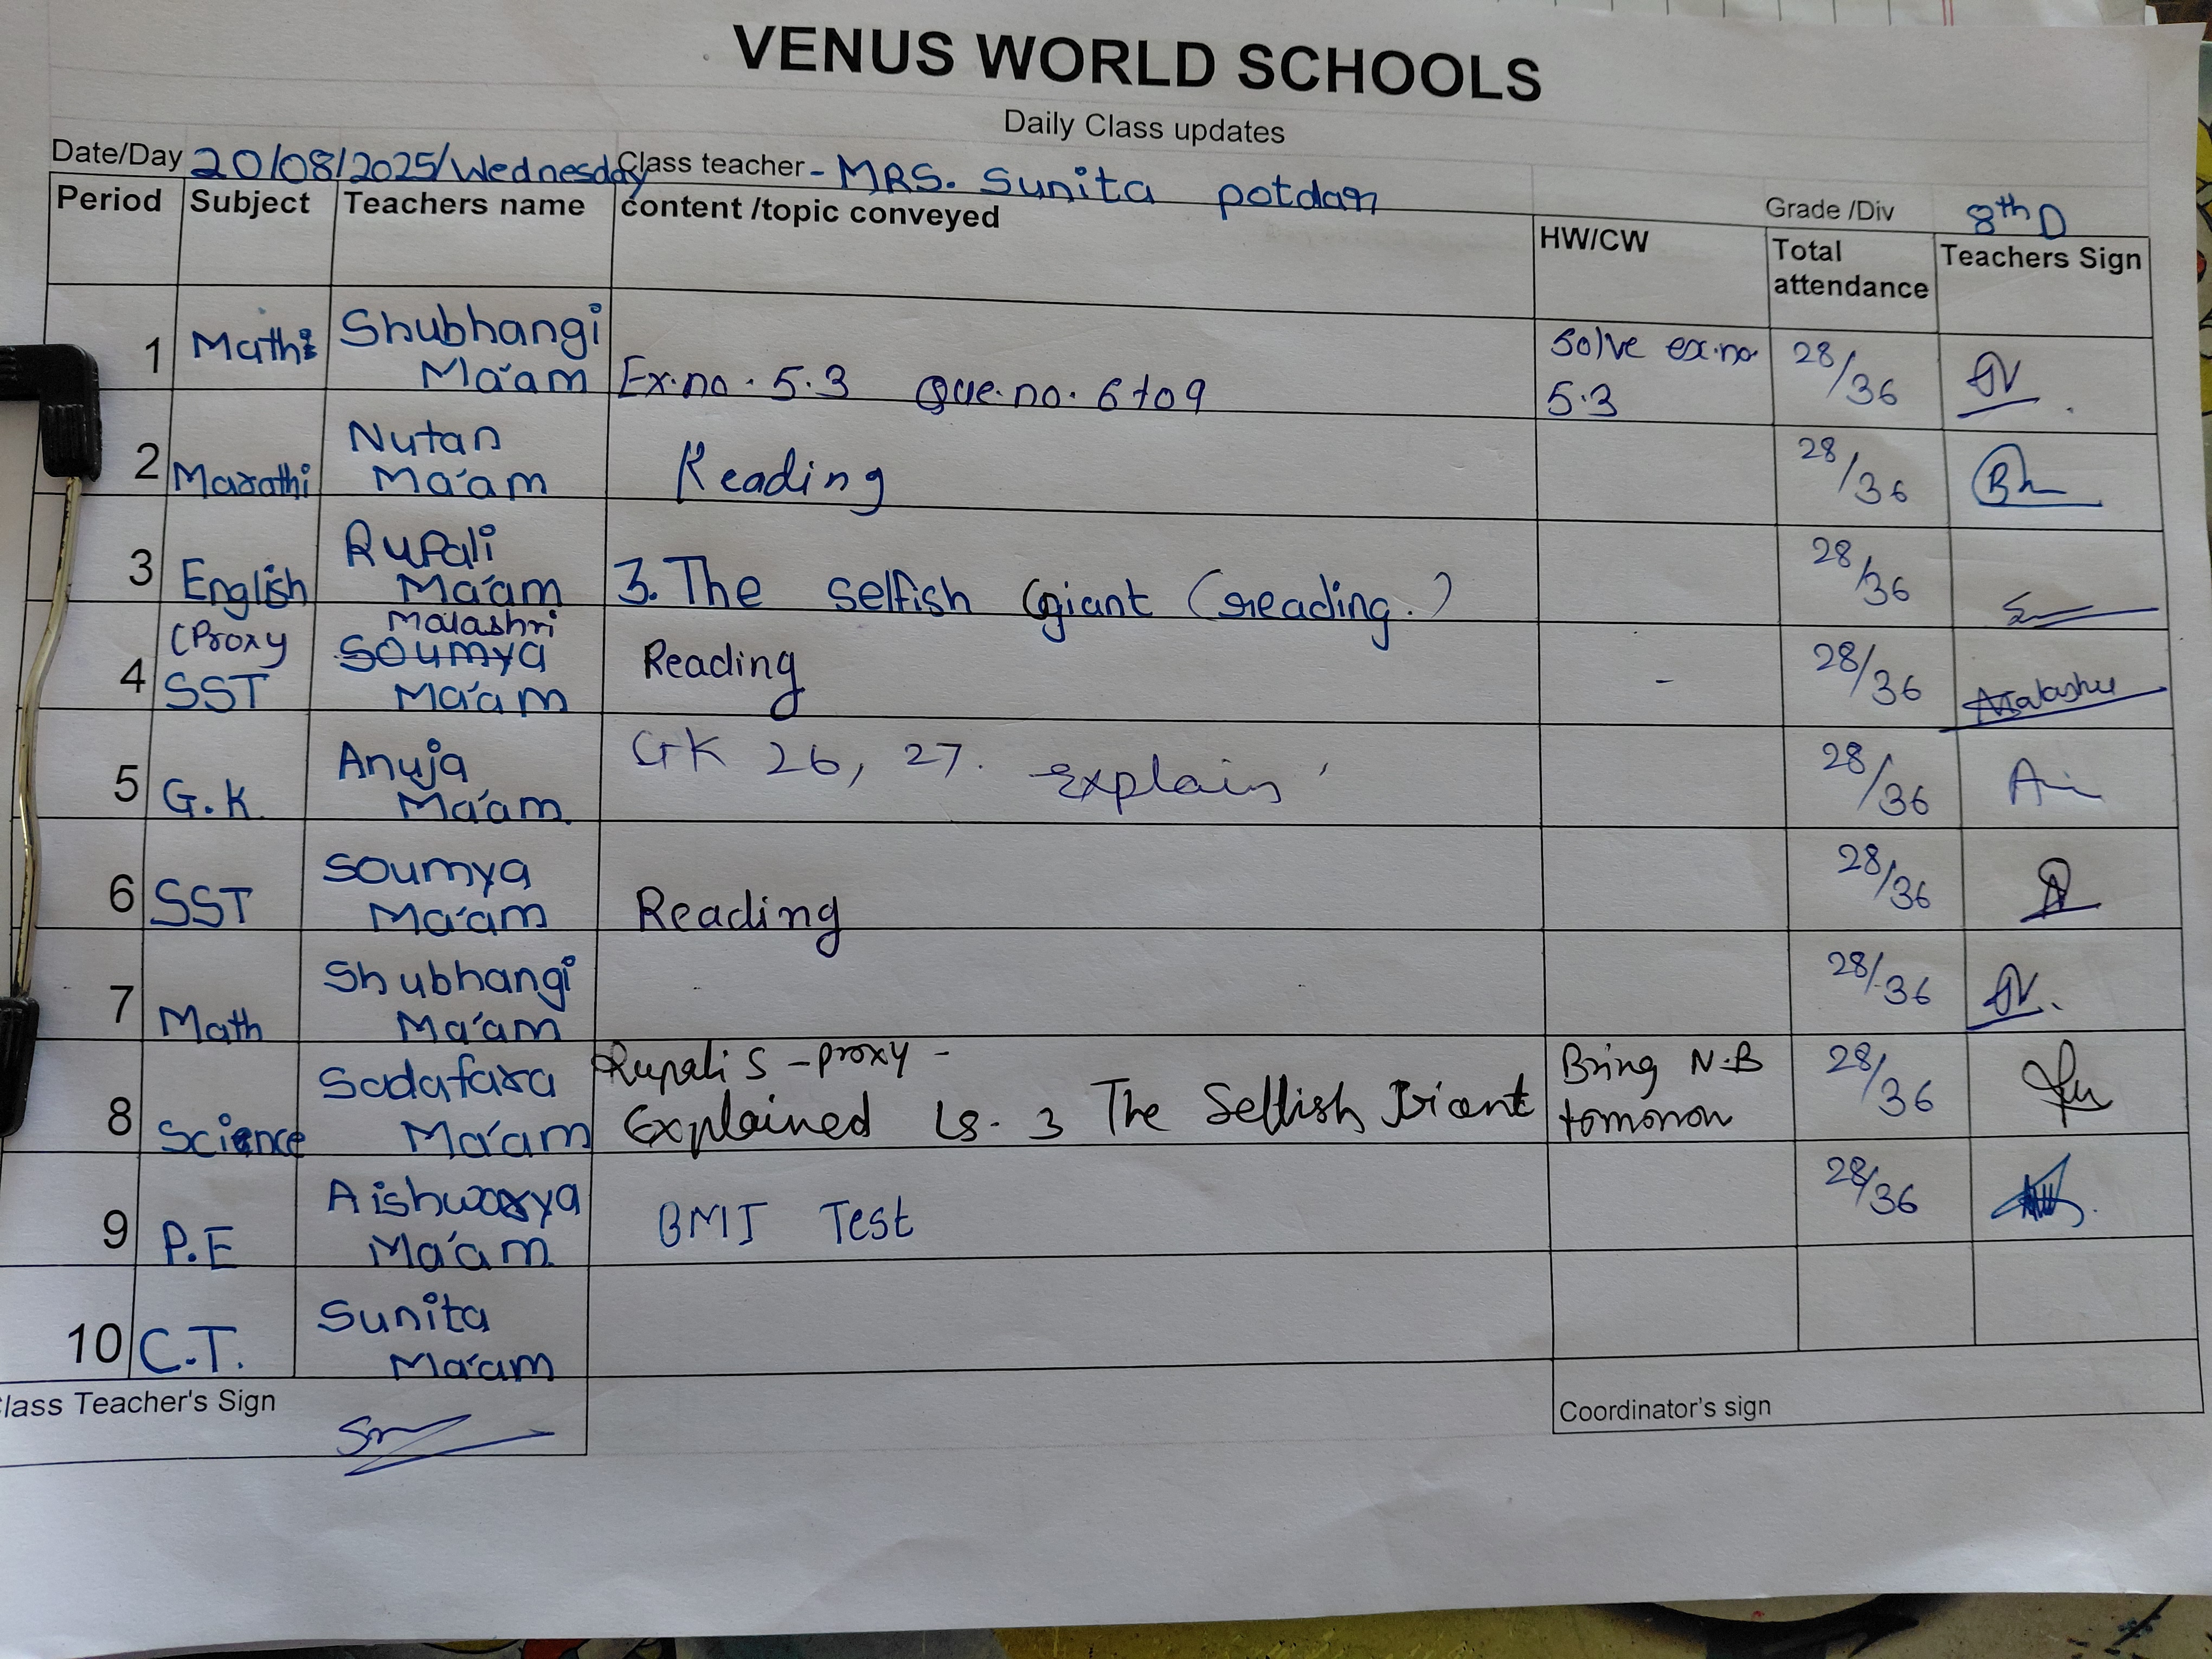 VENUS WORLD SCHOOLS
Daily Class updates
Date/Day 20/08/2025/Wednesday Class teacher - MRS. Sunita potdar Grade /Div 8th D
Period Subject Teachers name content /topic conveyed HW/CW Total attendance Teachers Sign
1 Math Shubhangi Ma'am Ex.no. 5.3 Que.no. 6 to 9 Solve ex.no. 5.3 28/36
2 Marathi Nutan Ma'am Reading 28/36
3 English Rupali Ma'am 3. The selfish Giant (reading.) 28/36
4 (Proxy SST Malashri Soumya Ma'am Reading - 28/36 Malashri
5 G.K. Anuja Ma'am. GK 26, 27. explain 28/36
6 SST Soumya Ma'am Reading 28/36
7 Math Shubhangi Ma'am 28/36
8 Science Sadafara Ma'am Rupali S - proxy - Explained Ls. 3 The Selfish Giant Bring N.B tomorrow 28/36
9 P.E Aishwarya Ma'am BMI Test 28/36
10 C.T. Sunita Ma'am
Class Teacher's Sign Coordinator's sign